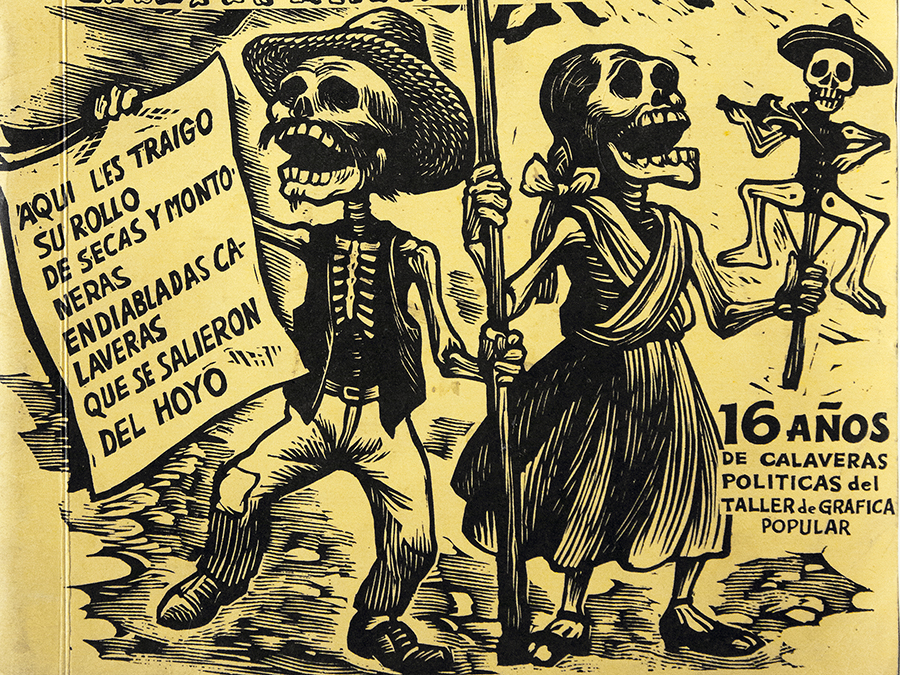 AQUI LES TRAIGO
SU ROLLO
DE SECAS Y MONTO-
NERAS
ENDIABLADAS CA-
LAVERAS
QUE SE SALIERON
DEL HOYO
16 AÑOS
DE CALAVERAS
POLITICAS del
TALLER de GRAFICA
POPULAR